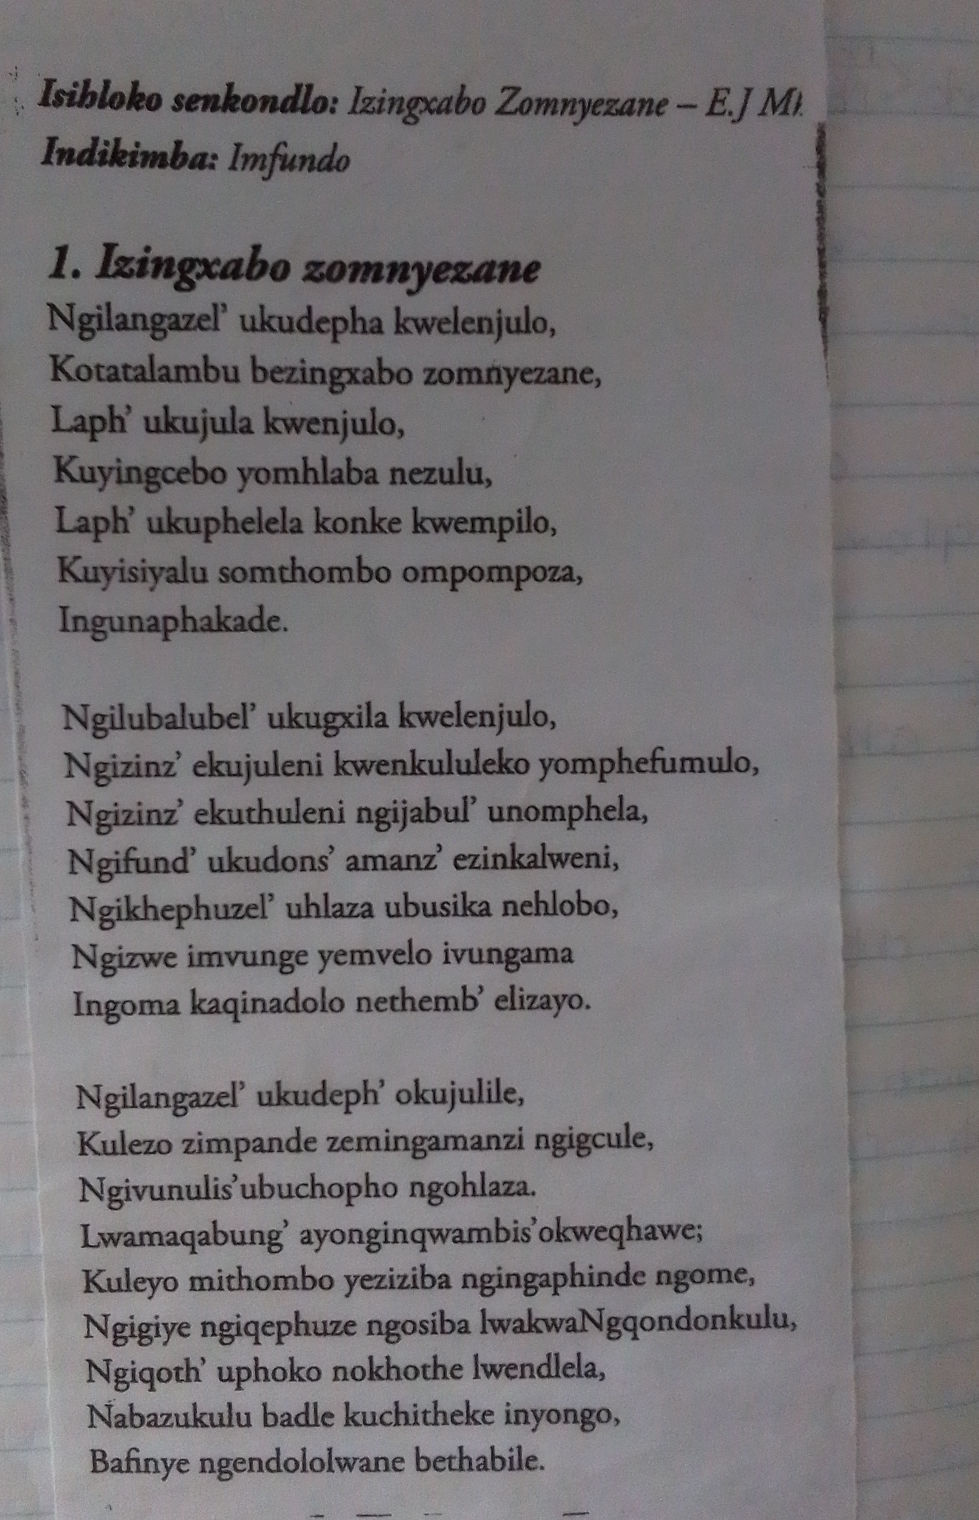 Isihloko senkondlo: Izingxabo Zomnyezane – E.J
Indikimba: Imfundo
1. Izingxabo zomnyezane
Ngilangazel’ ukudepha kwelenjulo,
Kotatalambu bezingxabo zomnyezane,
Laph’ ukujula kwenjulo,
Kuyingcebo yomhlaba nezulu,
Laph’ ukuphelela konke kwempilo,
Kuyisiyalu somthombo ompompoza,
Ingunaphakade.
Ngilubalubel’ ukugxila kwelenjulo,
Ngizinz’ ekujuleni kwenkululeko yomphefumulo,
Ngizinz’ ekuthuleni ngijabul’ unomphela,
Ngifund’ ukudons’ amanz’ ezinkalweni,
Ngikhephuzel’ uhlaza ubusika nehlobo,
Ngizwe imvunge yemvelo ivungama
Ingoma kaqinadolo nethemb’ elizayo.
Ngilangazel’ ukudeph’ okujulile,
Kulezo zimpande zemingamanzi ngigcule,
Ngivunulis’ubuchopho ngohlaza.
Lwamaqabung’ ayonginqwambis’okweqhawe;
Kuleyo mithombo yeziziba ngingaphinde ngome,
Ngigiye ngiqephuze ngosiba lwakwaNgqondonkulu,
Ngiqoth’ uphoko nokhothe lwendlela,
Nabazukulu badle kuchitheke inyongo,
Bafinye ngendololwane bethabile.